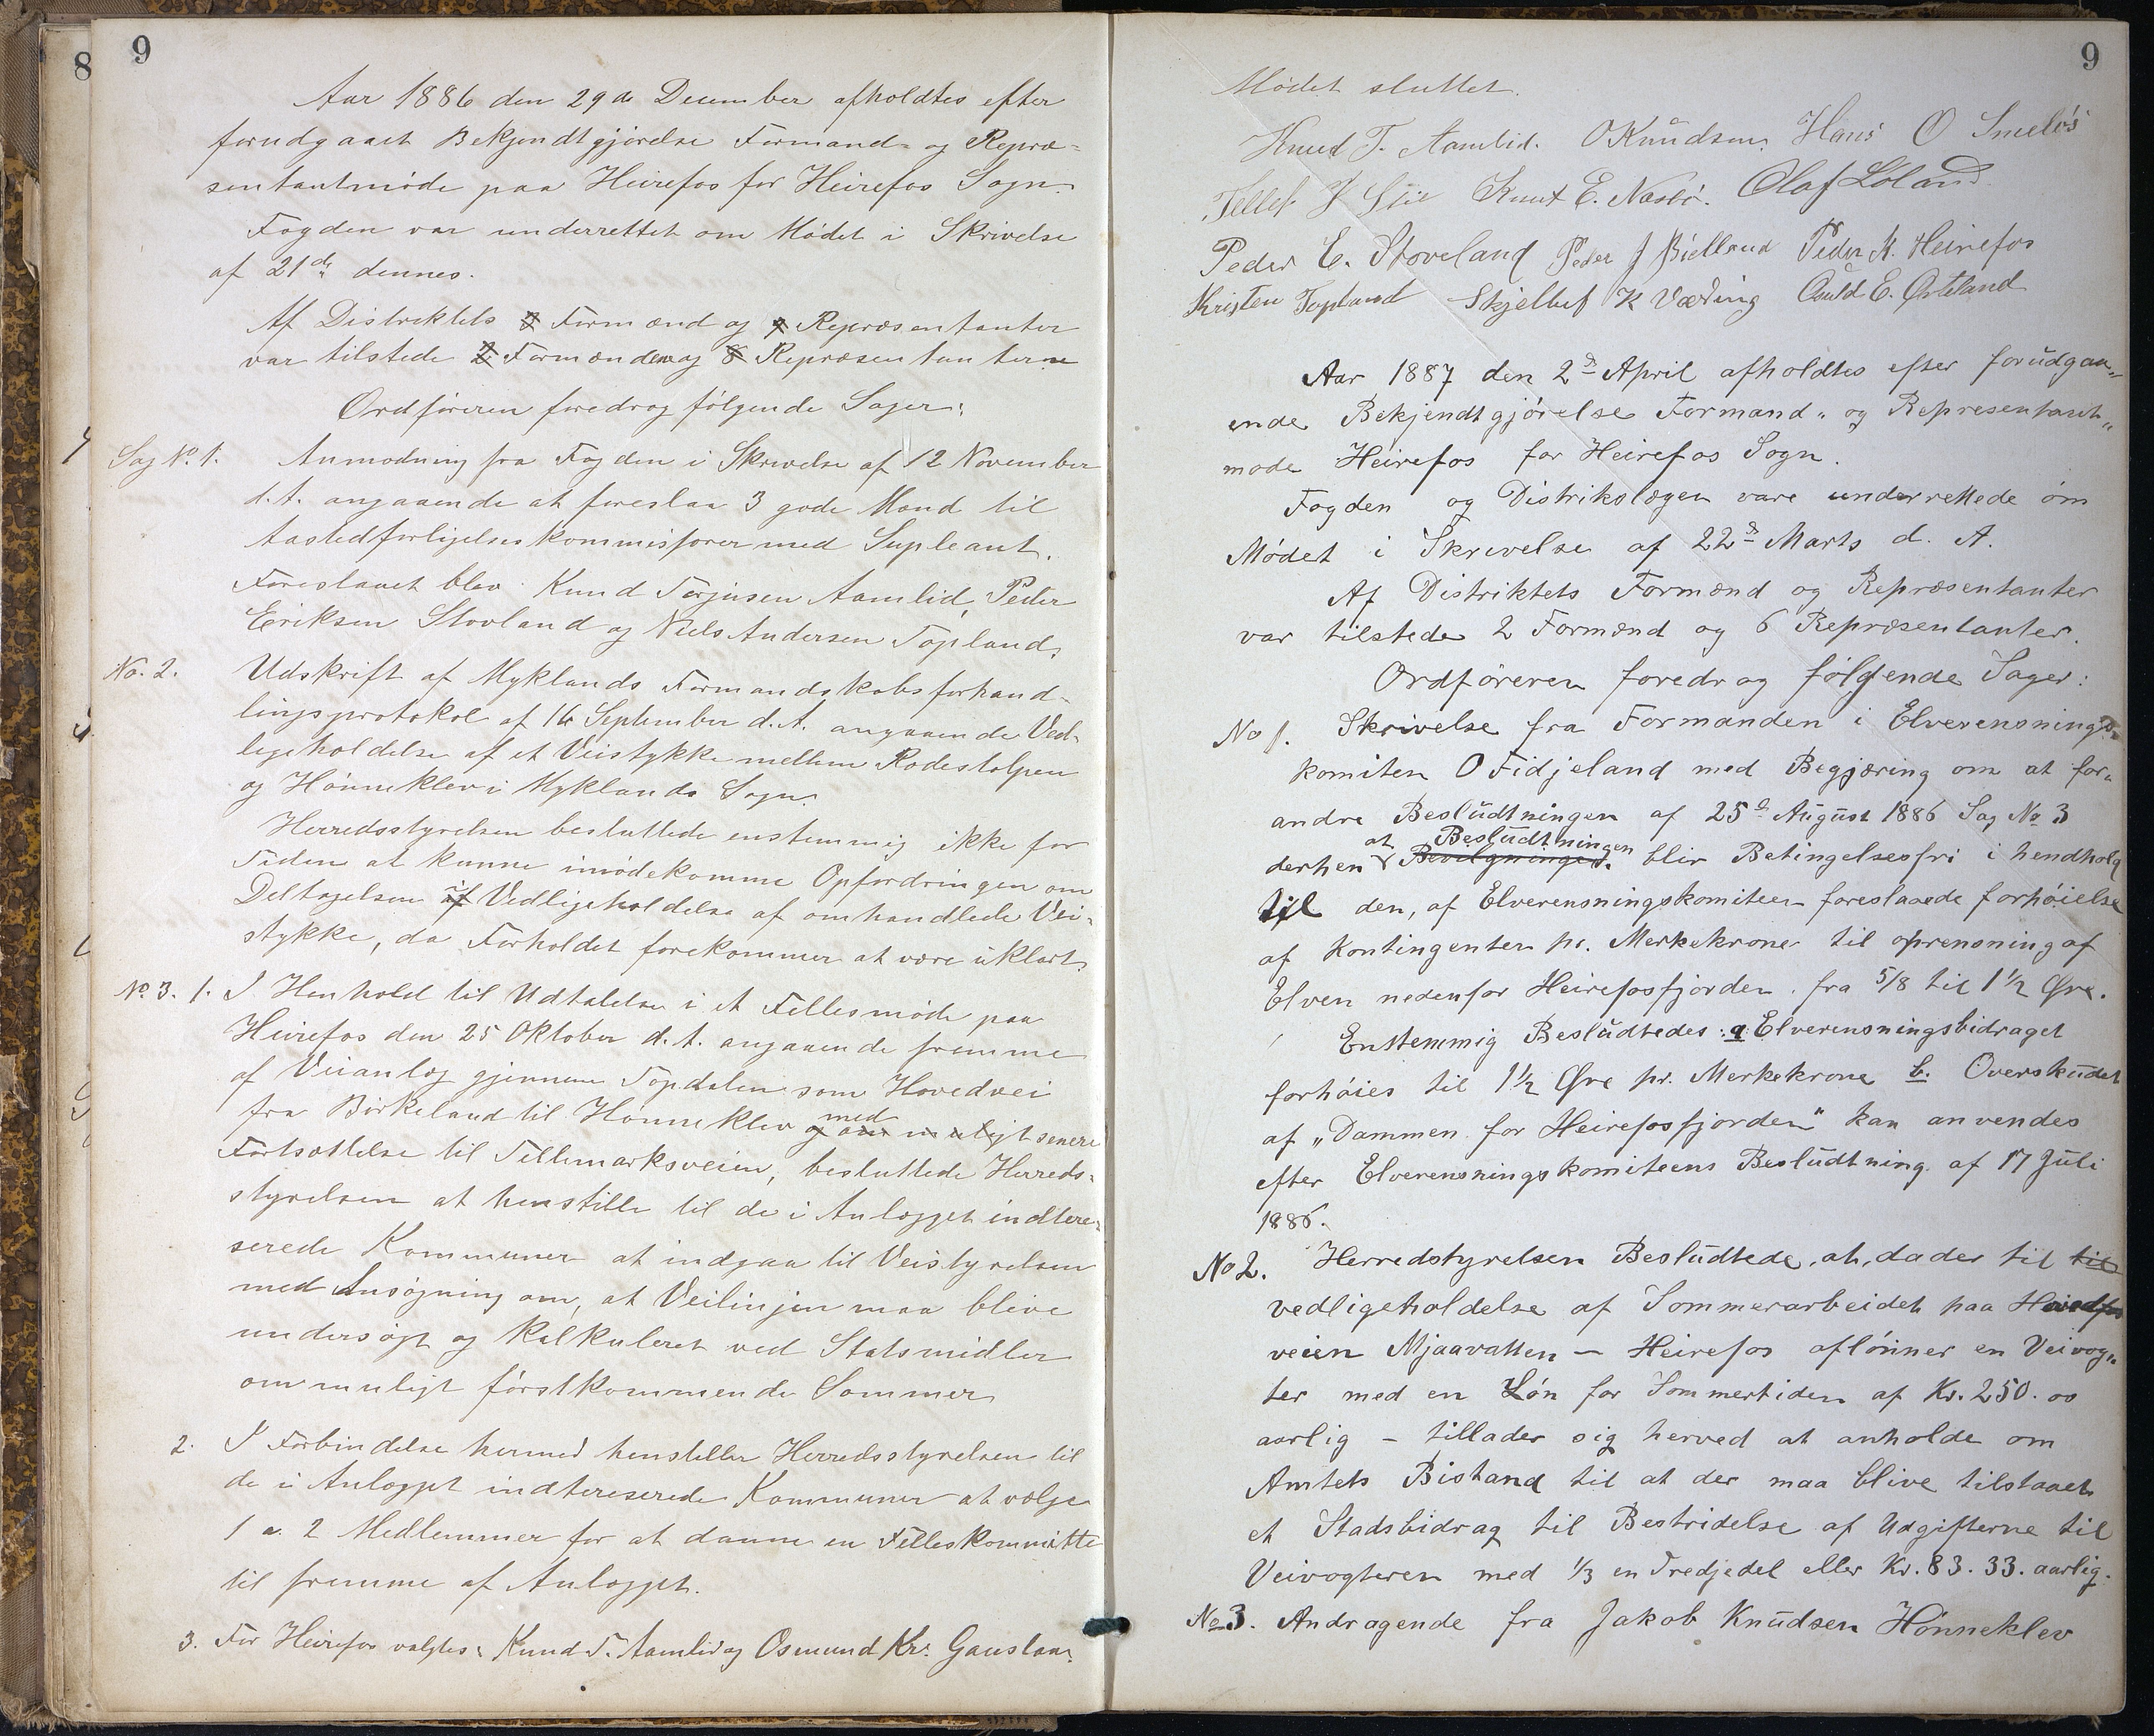 8
9
Aar 1886 den 29de December afholdtes efter
forudgaaet Bekjendtgjørelse Formand- og Repræ-
sentantmøde paa Heirefos for Heirefos Sogn.
Fogden var underrettet om Mødet i Skrivelse
af 21de dennes.
Af Distriktets Formænd og Repræsentanter
var tilstede Formændene og Repræsentanterne
Ordføreren foredrog følgende Sager:
Sag No. 1. Anmodning fra Fogden i Skrivelse af 12 November
d.A. angaaende at foreslaa 3 gode Mænd til
Aastedforligelseskommissærer med Supleant.
Foreslaaet blev Knud Torjusen Aamlid, Peder
Eriksen Stovland og Niels Andersen Topland.
No. 2. Udskrift af Myklands Formandskabsforhand-
lingsprotokol af 16 September d.A. angaaende Ved-
ligeholdelse af et Veistykke mellem Rodestolpen
og Hønneklev i Myklands Sogn.
Herredsstyrelsen besluttede enstemmig ikke for
Tiden at kunne imødekomme Opfordringen om
Deltagelsen i Vedligeholdelse af omhandlede Vei-
stykke, da Forholdet forekommer at være uklart.
No. 3. 1. I Henhold til Udtalelse i et Fellesmøde paa
Heirefos den 25 Oktober d.A. angaaende fremme
af Veianlæg gjennem Topdalen som Hovedvei
fra Birkeland til Hønneklev og om muligt med senere
Fortsættelse til Tellemarksveien, besluttede Herreds-
styrelsen at henstille til de i Anlægget indtere-
serede Kommuner at indgaa til Veistyrelsen
med Ansøgning om, at Veilinjen maa blive
undersøgt og kalkuleret ved Statsmidler
om muligt førstkommende Sommer
2. I Forbindelse hermed henstiller Herredsstyrelsen til
de i Anlægget indtereserede Kommuner at vælge
1 a 2 Medlemmer for at danne en Felleskommitte
til fremme af Anlægget.
3. For Heirefos valgtes: Knud T. Aamlid og Osmund Kr. Gauslaa.
9
Mødet sluttet.
Knud T. Aamlid. O Knudsen. Hans O
Tellef J Knut E. Næsbø. Olaf Løland.
Peder E. Stoveland Peder J Bielland Peder K. Heirefos
Kristen Topland K Væding E.
Aar 1887 den 2d April afholdtes efter forudgaa„
ende Bekjendtgjørelse Formand„ og Representant„
møde Heirefos for Heirefos Sogn.
Fogden og Distrikslægen vare underrettede om
Mødet i Skrivelse af 22d Marts d. A.
Af Distriktets Formænd og Repræsentanter
var tilstede 2 Formænd og 6 Repræsentanter.
Ordføreren foredrog følgende Sager:
No 1. Skrivelse fra Formanden i Elverensnings„
komiten O Fidjeland med Begjæring om at for„
andre Besludtningen af 25d August 1886 Sag No 3
derhen at Bevilgningen Besludtningen blir Betingelsesfri i hendhold
til den, af Elverensningskomiteen foreslaaede forhøielse
af Kontingenten pr. Merkekrone til oprensning af
Elven nedenfor Heirefosfjorden. fra 5/8 til 1 1/2 Øre.
Enstemmig Besludtedes: a Elverensningsbidraget
forhøies til 1 1/2 Øre pr. Merkekrone b. Overskudet
af „Dammen for Heirefosfjorden“ kan anvendes
efter Elverensningskomiteens Besludtning af 17 Juli
1886.
No 2. Herredstyrelsen Besludtede, at, da der til til
vedligeholdelse af Sommerarbeidet paa
veien Mjaavatten – Heirefos aflønner en Veivog„
ter med en Løn for Sommertiden af Kr. 250. oo
aarlig – tillader sig herved at anholde om
Amtets Bistand til at der maa blive tilstaaet
et Stadsbidrag til Bestridelse af Udgifterne til
Veivogteren med 1/3 en Tredjedel eller Kr. 83. 33. aarlig.
No 3. Andragende fra Jakob Knudsen Hønneklev